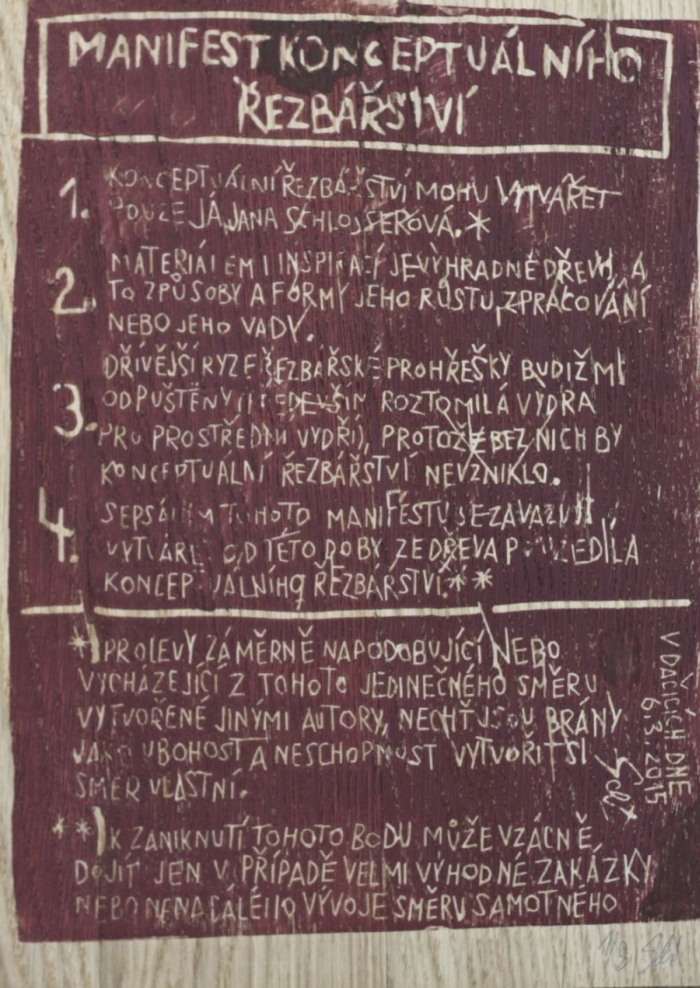 MANIFEST KONCEPTUÁLNÍHO
ŘEZBÁŘSTVÍ
1. KONCEPTUÁLNÍ ŘEZBÁŘSTVÍ MOHU VYTVÁŘET
POUZE JÁ, JANA SCHLOSSEROVÁ.*
2. MATERIÁLEM I INSPIRACÍ JE VÝHRADNĚ DŘEVO, A
TO ZPŮSOBY A FORMY JEHO RŮSTU, ZPRACOVÁNÍ
NEBO JEHO VADY.
3. DŘÍVĚJŠÍ RYZE ŘEZBÁŘSKÉ PROHŘEŠKY BUDIŽ MI
ODPUŠTĚNY (PŘEDEVŠÍM ROZTOMILÁ VYDRA
PRO PROSTŘEDNÍ VYDŘI), PROTOŽE BEZ NICH BY
KONCEPTUÁLNÍ ŘEZBÁŘSTVÍ NEVZNIKLO.
4. SEPSÁNÍM TOHOTO MANIFESTU SE ZAVAZUJI
VYTVÁŘET OD TÉTO DOBY ZE DŘEVA POUZE DÍLA
KONCEPTUÁLNÍHO ŘEZBÁŘSTVÍ.**
*) PROJEVY ZÁMĚRNĚ NAPODOBUJÍCÍ NEBO
VYCHÁZEJÍCÍ Z TOHOTO JEDINEČNÉHO SMĚRU
VYTVOŘENÉ JINÝMI AUTORY, NECHŤ JSOU BRÁNY
JAKO UBOHOST A NESCHOPNOST VYTVOŘIT SI
SMĚR VLASTNÍ.
**) K ZANIKNUTÍ TOHOTO BODU MŮŽE VZÁCNĚ
DOJÍT JEN V PŘÍPADĚ VELMI VÝHODNÉ ZAKÁZKY
NEBO NENADÁLÉHO VÝVOJE SMĚRU SAMOTNÉHO
V DAČICÍCH DNE
6.3.2015